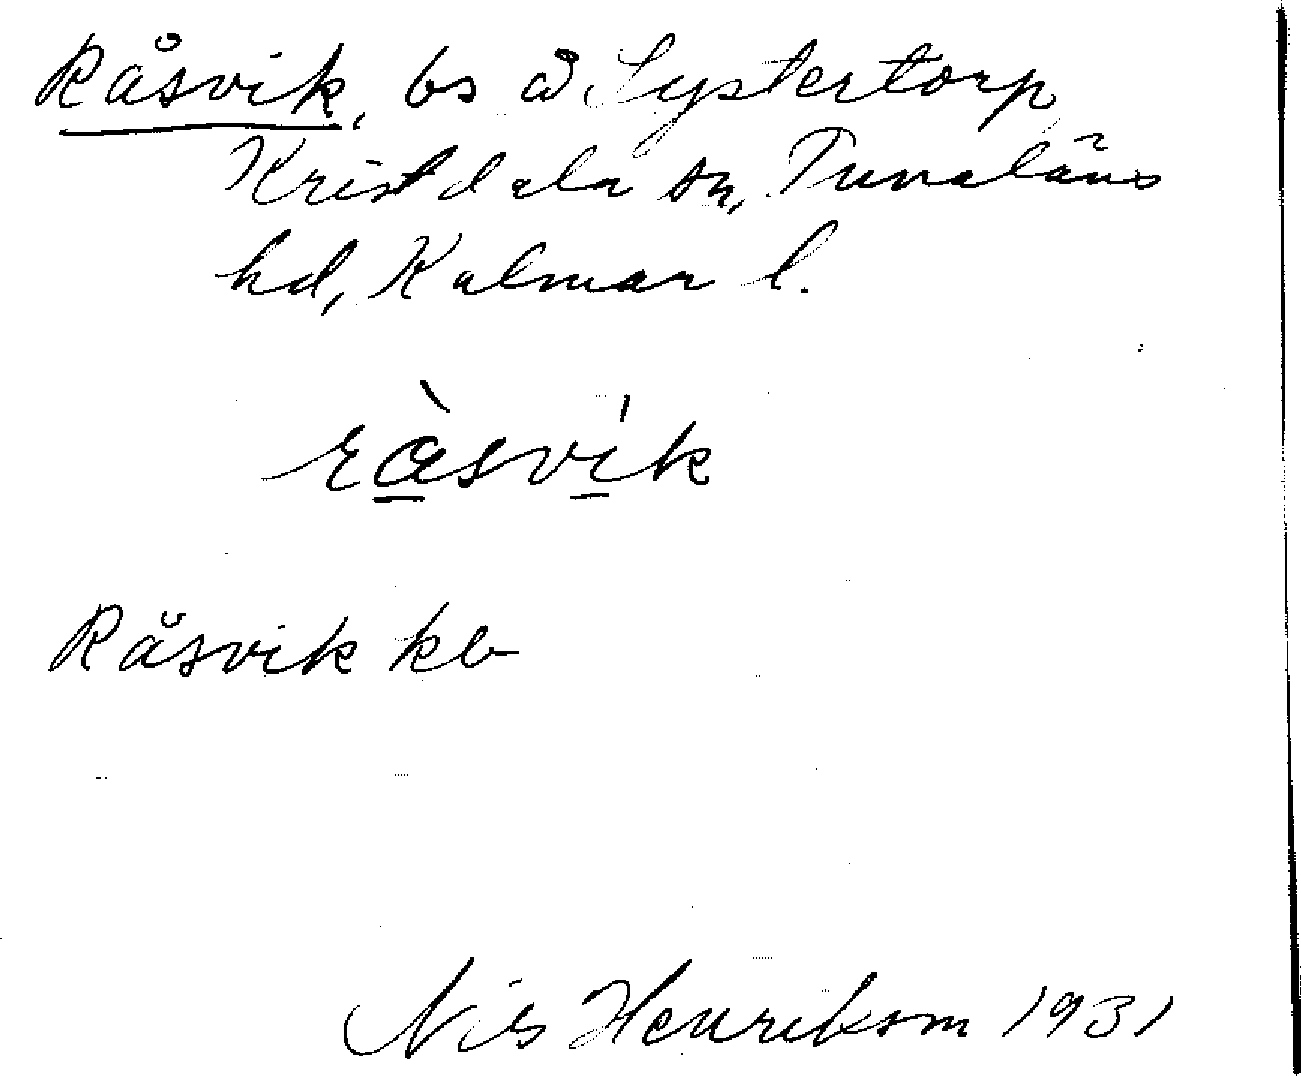 Råsvik, bs å Systertorp
Kristdala sn, Tunaläns
hd, Kalmar l.
ràsvík
Råsvik kb
Nils Henrikson 1931